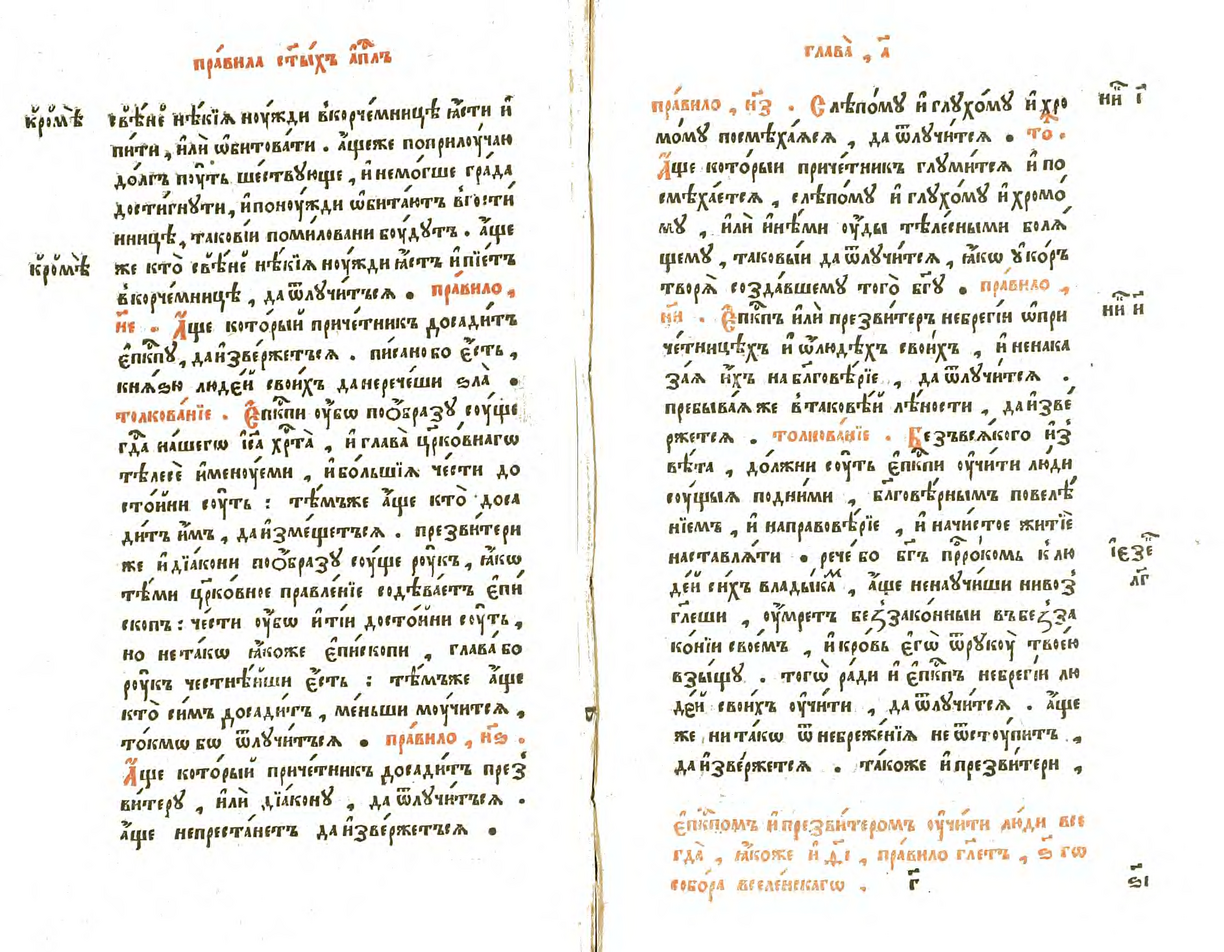 пра́вила ст҃ы́хъ а҆пⷭ҇лъ
кро́мѣ
свѣ́не нѣ́кїѧ ноу́жди вкорче́мницѣ ꙗ҆́сти и҆
пи́ти, и҆лѝ ѡ҆битова́ти. а҆́щеже поприлоу́чаю
до́лгъ поу́ть ше́ствующе, и҆ немо́гше гра́да
дости́гнути, и҆поноу́жди ѡ҆бита́ютъ вгости́
нницѣ, такові́и поми́ловани боу́дутъ. а҆́ще
кро́мѣ
же кто̀ свѣ́не нѣ́кїѧ ноу́жди ꙗ҆́стъ и҆пїе́тъ
вкорче́мницѣ, да ѿлучи́тьсѧ. пра́вило,
н҃е. А҆́ще кото́рый приче́тникъ досади́тъ
є҆пⷭ҇кпу, да и҆зве́ржетьсѧ. пи́сано бо є҆́сть,
кнѧ́зю люде́й свои́хъ да нерече́ши ѕла̀.
толкова́нїе. Є҆пⷭ҇кпи ᲂу҆́бѡ поѻ҆́бразу соу́ще
гдⷭ҇а на́шегѡ і҆с҃а хрⷭ҇та̀, и҆ глава̀ црⷪ҇ко́внагѡ
тѣлесѐ и҆меноу́еми, и҆ бо́льшїѧ че́сти до
сто́йни соу́ть: тѣ́мъже а҆́ще кто̀ доса
ди́тъ и҆̀мъ, да и҆зме́щетьсѧ. презви́тери
же и҆ дїа́кони поѻ҆́бразу соу́ще роу́къ, ꙗ҆́кѡ
тѣ́ми црⷪ҇ко́вное правле́нїе содѣ́ваетъ є҆пи́
скопъ: че́сти ᲂу҆́бѡ и҆ті́и досто́йни соу́ть,
но нета́кѡ ꙗ҆́коже є҆пи́скопи, глава́ бо
роу́къ честнѣ́йши є҆́сть: тѣ́мъже а҆́ще
кто̀ си́мъ досади́тъ, ме́ньши моу́читсѧ,
то́кмѡ бѡ ѿлучи́тьсѧ. пра́вило, н҃ѕ.
А҆́ще кото́рый приче́тникъ досади́тъ през
ви́теру, и҆лѝ дїа́кону, да ѿлучи́тьсѧ.
а҆́ще непреста́нетъ да и҆зве́ржетьсѧ.
глава̀, а҃
пра́вило, н҃з. Слѣпо́му и҆ глухо́му и҆ хро
мо́му посмѣха́ѧсѧ, да ѿлучи́тсѧ. то́.
А҆́ще кото́рыи приче́тникъ глуми́тсѧ и҆ по
смѣха́етсѧ, слѣпо́му и҆ глухо́му и҆ хромо́
му, и҆лѝ и҆нѣ́ми ᲂу҆́ды тѣле́сными болѧ́
щему, таковы́и да ѿлучи́тсѧ, ꙗ҆́кѡ уко́ръ
творѧ̀ созда́вшему того̀ бг҃у. пра́вило,
н҃и. Є҆пⷭ҇кпъ и҆лѝ презви́теръ небрегі́и ѡ҆при
че́тницѣхъ и҆ ѡ҆лю́дѣхъ свои́хъ, и҆ ненака
за́ѧ и҆́хъ на благовѣ́рїе, да ѿлучи́тсѧ.
пребыва́ѧже втаковѣ́й лѣ́ности, да и҆зве́
ржетсѧ. толкова́нїе. Безъвсѧ́кого и҆з
вѣ́та, до́лжни соу́ть є҆пⷭ҇кпи ᲂу҆чи́ти лю́ди
соу́щыѧ подни́ми, бл҃говѣ́рнымъ повелѣ́
нїемъ, и҆ направовѣ́рїе, и҆ начи́стое житїѐ
наставлѧ́ти. рече́ бо бг҃ъ прⷪ҇ро́комь к лю
де́й си́хъ влады́камъ, а҆́ще ненаучи́ши нивоз
гл҃еши, ᲂу҆́мретъ беззако́нныи въ бе́зза
ко́нїи свое́мъ, и҆ кро́вь є҆гѡ̀ ѿрукоу̀ твоею́
взыщу̀. тогѡ̀ ра́ди и҆ є҆пⷭ҇кпъ небрегі́и лю
де́й свои́хъ ᲂу҆чи́ти, да ѿлучи́тсѧ. а҆́ще
же ни та́кѡ ѿ небреже́нїѧ не ѿстоу́питъ,
да и҆зве́ржетсѧ. та́коже и҆ презви́тери,
є҆пⷭ҇кпомъ и҆ презви́теромъ ᲂу҆чи́ти лю́ди все
гда̀, ꙗ҆́коже и҆ д҃і, пра́вило гл҃етъ, ѕ҃ гѡ
собо́ра вселе́нскагѡ.
г҃
ѕ҃і